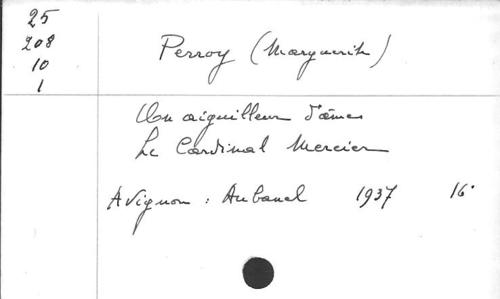 25
208
10
1
Perroy (Marguerite)
Un aiguilleur d'âmes
Le Cardinal Mercier
Avignon : Aubanel 1937 16°